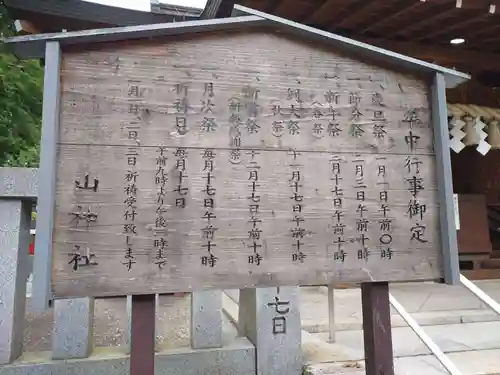 年中行事御定
一、歳旦祭 一月一日午前〇時
一、節分祭 二月三日午前十時
一、祈年祭 二月十七日午前十時
（春祭）
一、例大祭 十一月十七日午前十時
（秋祭）
一、新嘗祭 十二月十七日午前十時
（新穀感謝祭）
一、月次祭 毎月十七日午前十時
一、祈祷日 毎月十七日
午前九時より午後三時まで
一月一日、二日、三日祈祷受付致します
山神社
十七日